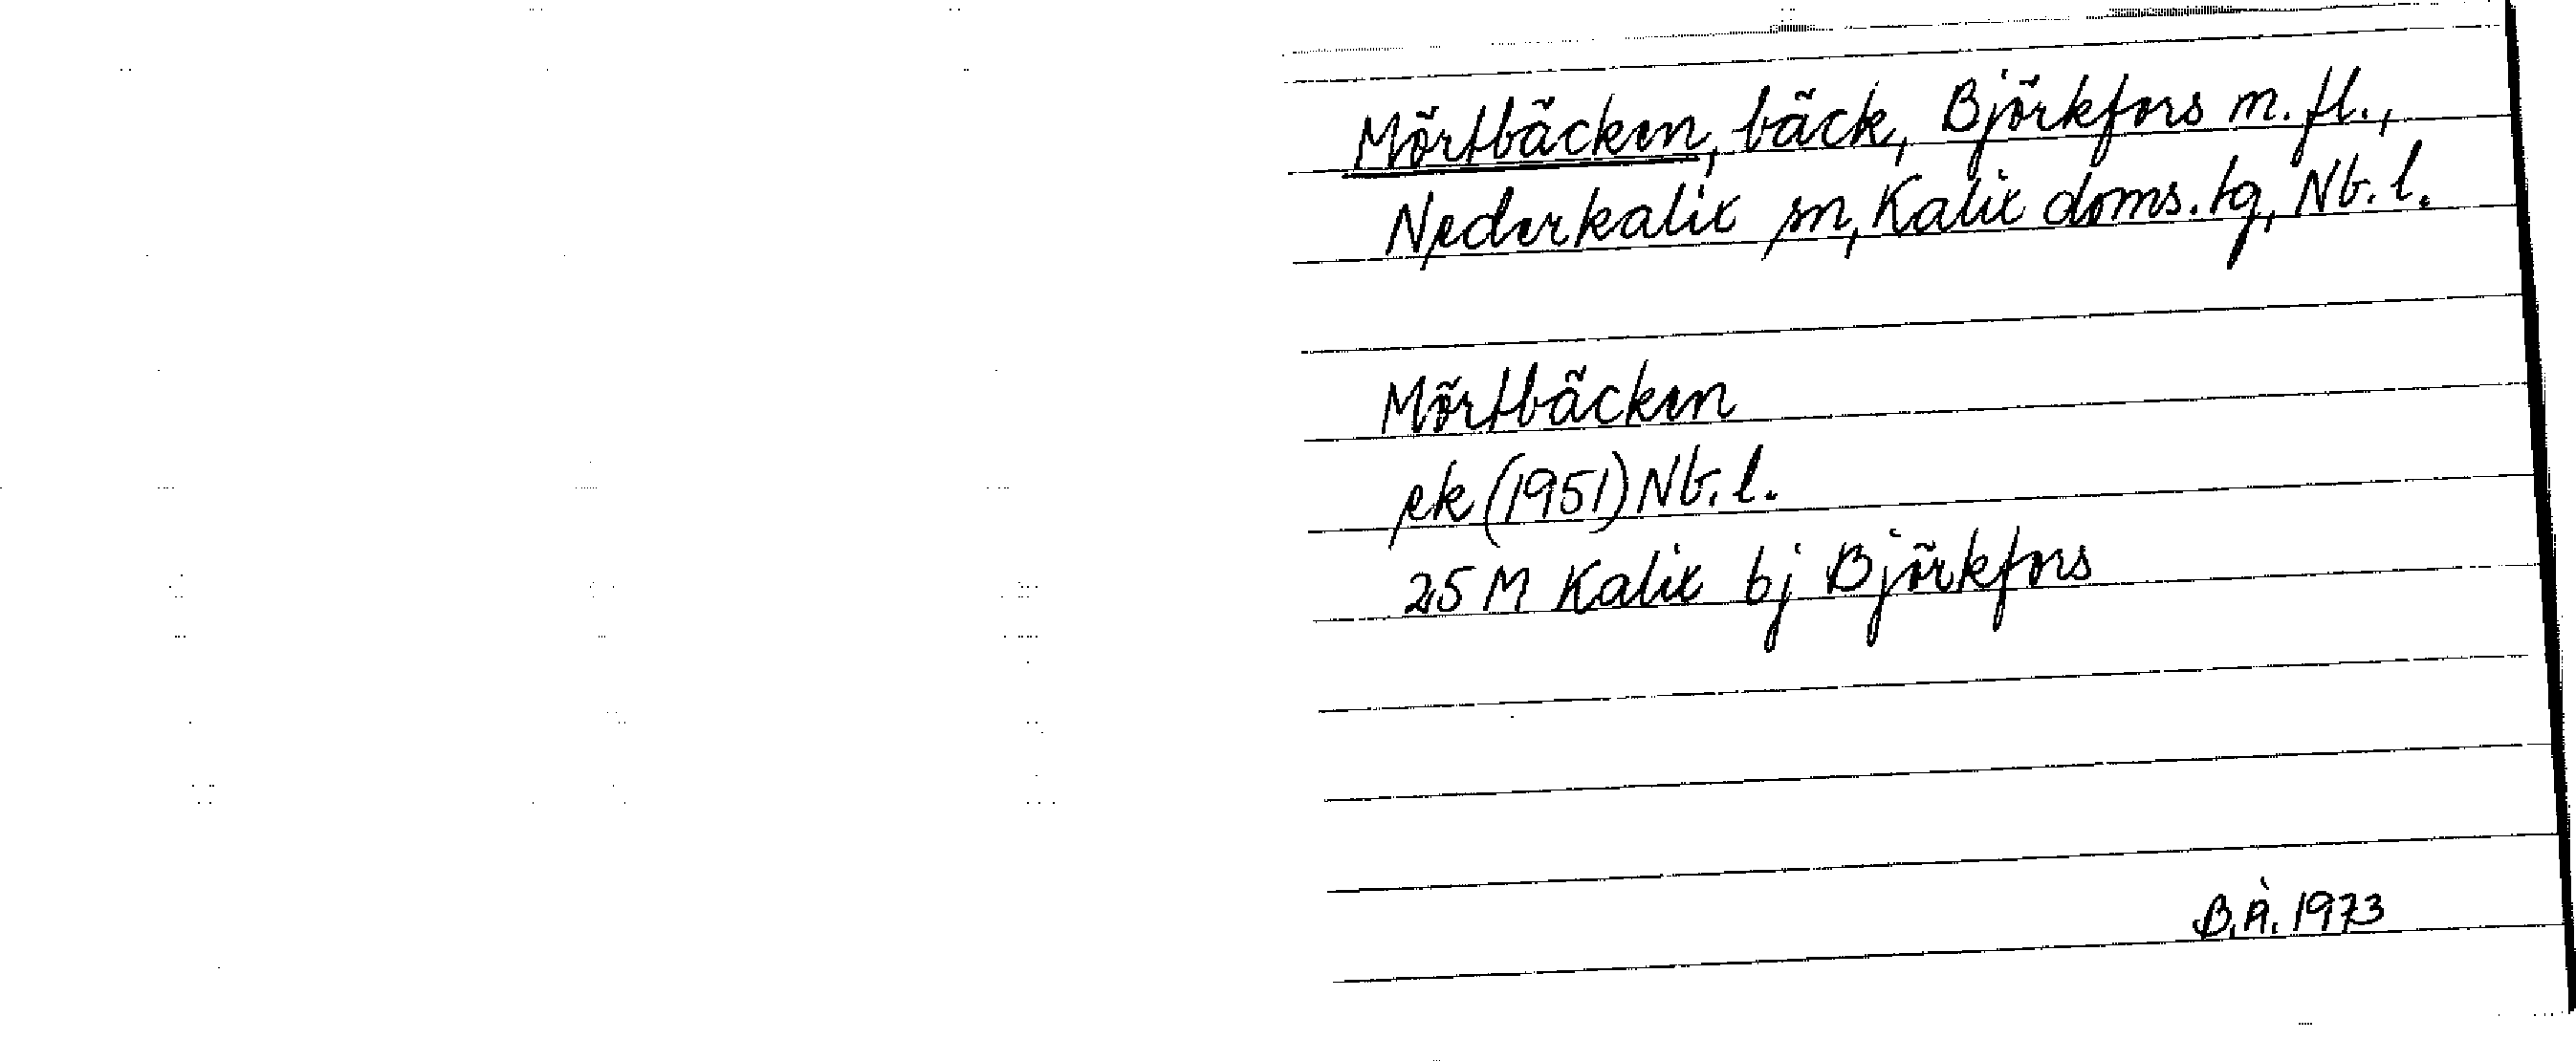 Mörtbäcken, bäck, Björkfors m. fl.,
Nederkalix sn, Kalix doms. tg, Nb. l.
Mörtbäcken
ek (1951) Nb. l.
25 M Kalix bj Björkfors
B.Å. 1973